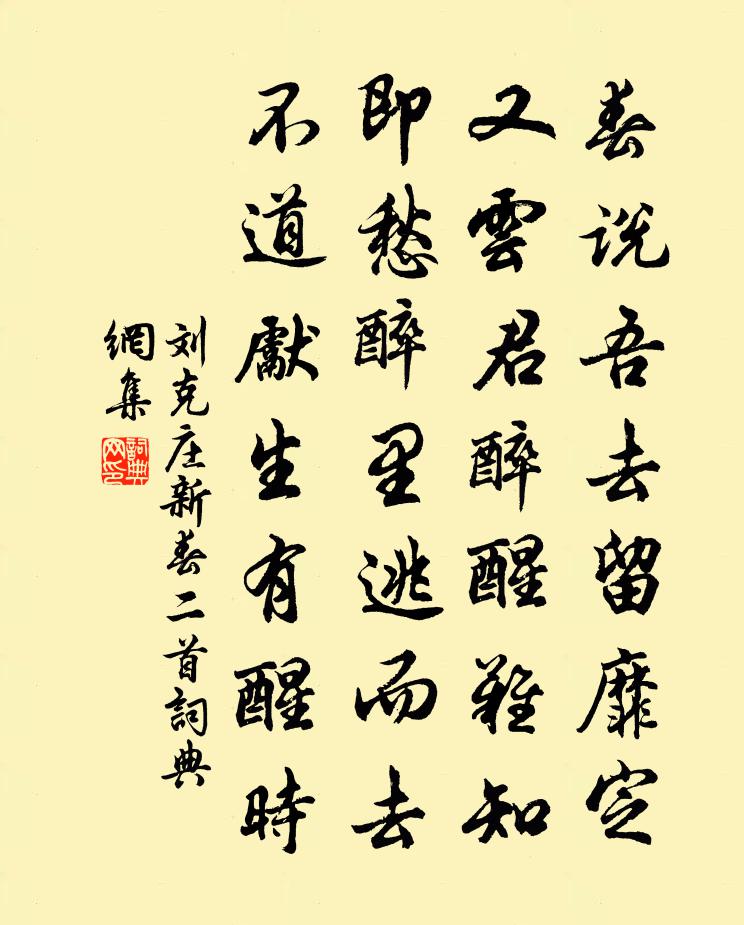 春说吾去留靡定
又雲君醉醒难知
即愁醉里逃而去
不道獻生有醒時
刘克庄新春二首詞典
網集
詞典網印